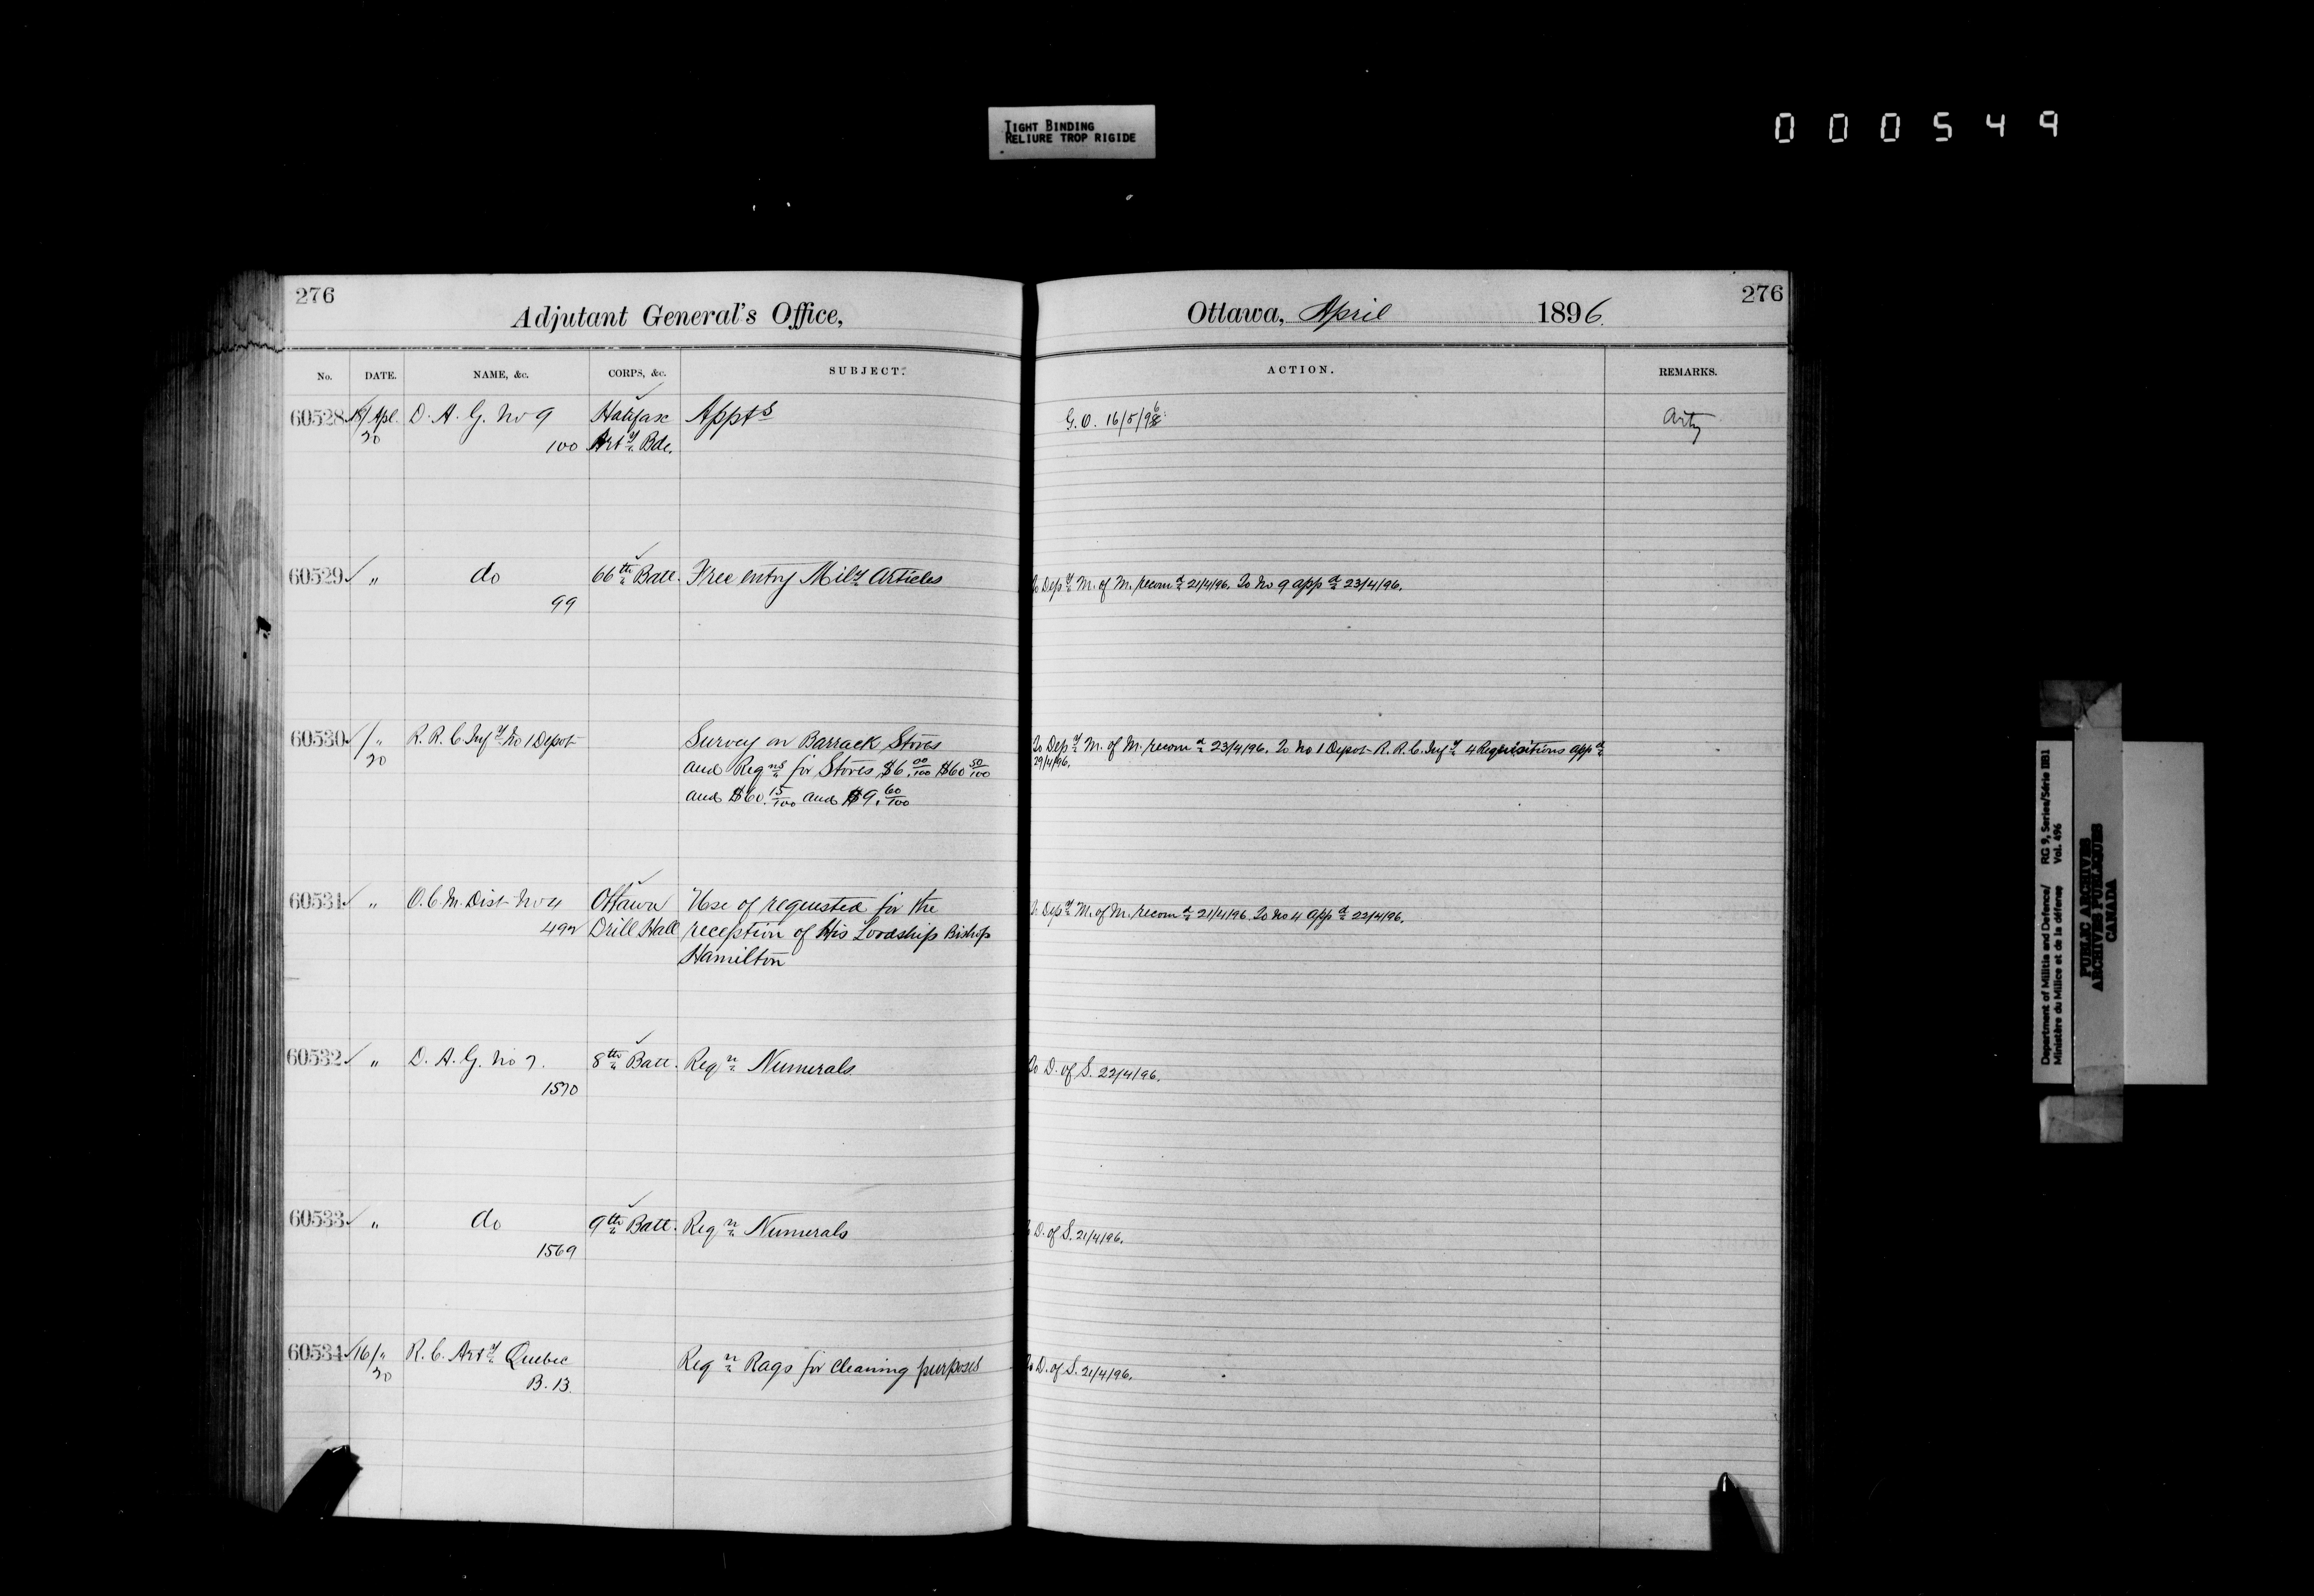 TIGHT BINDING
RELIURE TROP RIGIDE
000549
276
Adjutant General's Office,
No. DATE. NAME, &c. CORPS, &c. SUBJECT.
60528 18/Apl. D. A. G. No 9 Halifax Appts
20 100 Arty. Bde.
60529 " do 66th Batt. Free entry Mily Articles
99
60530 /" R. R. C. Infy No 1 Depot Survey on Barrack Stores
20 and Reqns for Stores $6.00/100 $60 50/100
and $60.15/100 and $9.60/100
60531 " O. C. M. Dist No 4 Ottawa Use of requested for the
Drill Hall reception of His Lordship Bishop
Hamilton
60532 " D. A. G. No 7. 8th Batt. Reqn Numerals
1570
60533 " do 9th Batt. Reqn Numerals
1569
60534 16/" R. C. Arty Quebec Reqn Rags for Cleaning purposes
20 B. 13.
276
Ottawa, April 1896.
ACTION. REMARKS.
G. O. 16/5/96. Arty
To Depy M. of M. recomd 21/4/96. To No 9 appd 23/4/96.
To Depy M. of M. recomd 23/4/96. To No 1 Depot R. R. C. Infy 4 Requisitions appd
29/4/96.
To Depy M. of M. recomd 21/4/96. To No 4 appd 22/4/96.
To D. of S. 22/4/96.
To D. of S. 21/4/96.
To D. of S. 21/4/96.
Department of Militia and Defence/ RG 9, Series/Série IIB1
Ministère du Milice et de la défense Vol. 496
PUBLIC ARCHIVES
ARCHIVES PUBLIQUES
CANADA